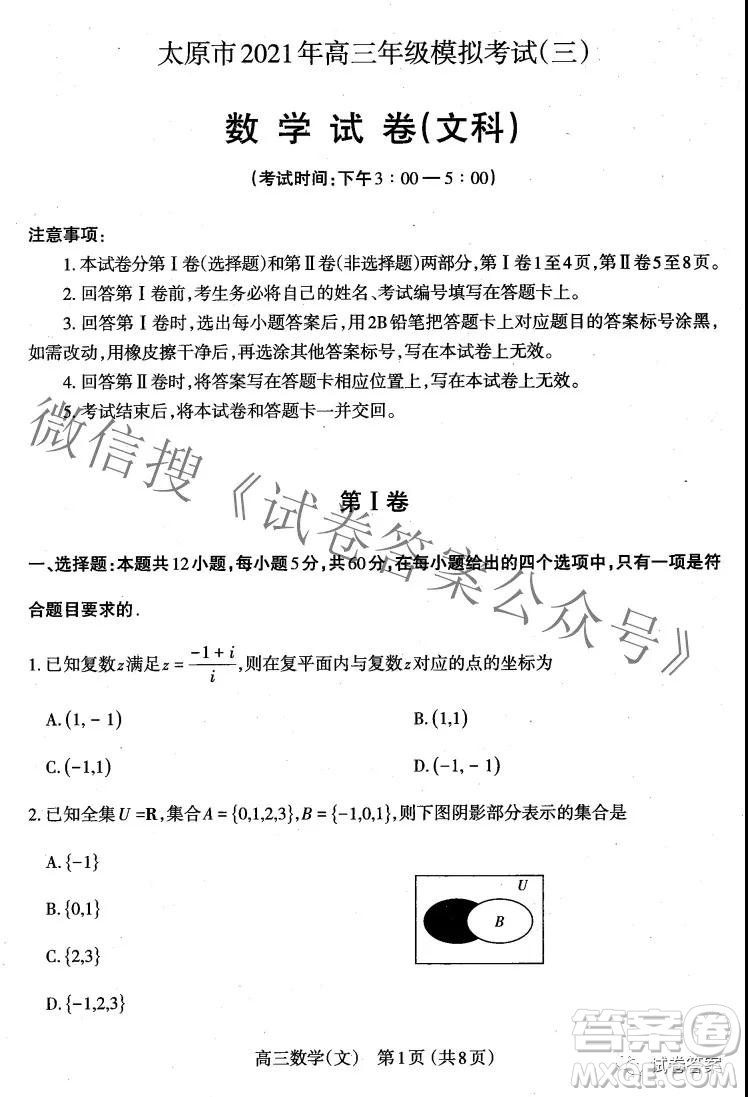 太原市2021年高三年级模拟考试(三)
数 学 试 卷(文科)
(考试时间:下午3:00—5:00)
注意事项:
1.本试卷分第Ⅰ卷(选择题)和第Ⅱ卷(非选择题)两部分,第Ⅰ卷1至4页,第Ⅱ卷5至8页。
2.回答第Ⅰ卷前,考生务必将自己的姓名、考试编号填写在答题卡上。
3.回答第Ⅰ卷时,选出每小题答案后,用2B铅笔把答题卡上对应题目的答案标号涂黑,
如需改动,用橡皮擦干净后,再选涂其他答案标号,写在本试卷上无效。
4.回答第Ⅱ卷时,将答案写在答题卡相应位置上,写在本试卷上无效。
5.考试结束后,将本试卷和答题卡一并交回。
微信搜《试卷答案公众号》
第Ⅰ卷
一、选择题:本题共12小题,每小题5分,共60分,在每小题给出的四个选项中,只有一项是符
合题目要求的.
1.已知复数z满足z=\frac{-1+i}{i},则在复平面内与复数z对应的点的坐标为
A.(1,-1) B.(1,1)
C.(-1,1) D.(-1,-1)
2.已知全集U=R,集合A={0,1,2,3},B={-1,0,1},则下图阴影部分表示的集合是
A.{-1}
B.{0,1}
C.{2,3}
D.{-1,2,3}
U
B
高三数学(文) 第1页(共8页)
试卷答案
答案圈
MXQE.COM